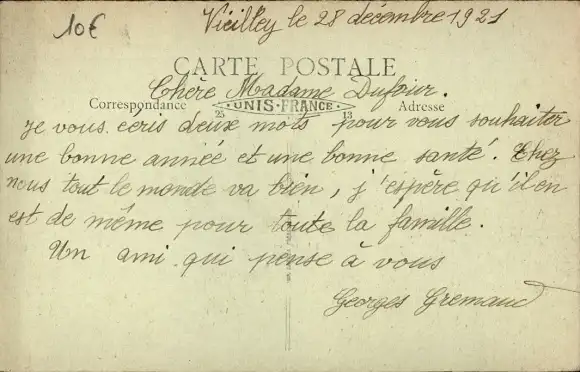 10€
Vieilley le 28 décembre 1921
CARTE POSTALE
Chère Madame Dufour.
Correspondance UNIS-FRANCE Adresse
25 13
Je vous écris deux mots pour vous souhaiter
une bonne année et une bonne santé. Chez
nous tout le monde va bien, j'espère qu'il en
est de même pour toute la famille.
Un ami qui pense à vous
Georges Gremaud